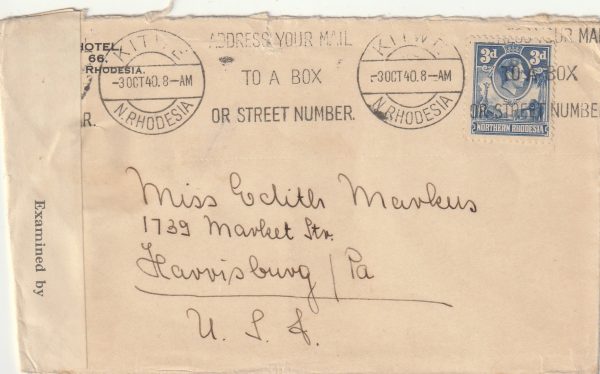 HOTEL,
66.
RHODESIA.
R.
KITWE
-3 OCT 40. 8-AM
N. RHODESIA
ADDRESS YOUR MAIL
TO A BOX
OR STREET NUMBER.
KITWE
-3 OCT 40. 8-AM
N. RHODESIA
YOUR MAI
TO A BOX
OR STREET NUMBE
3d 3d
NORTHERN RHODESIA
Examined by
Miss Edith Markus
1739 Market Str.
Harrisburg / Pa
U. S. A.